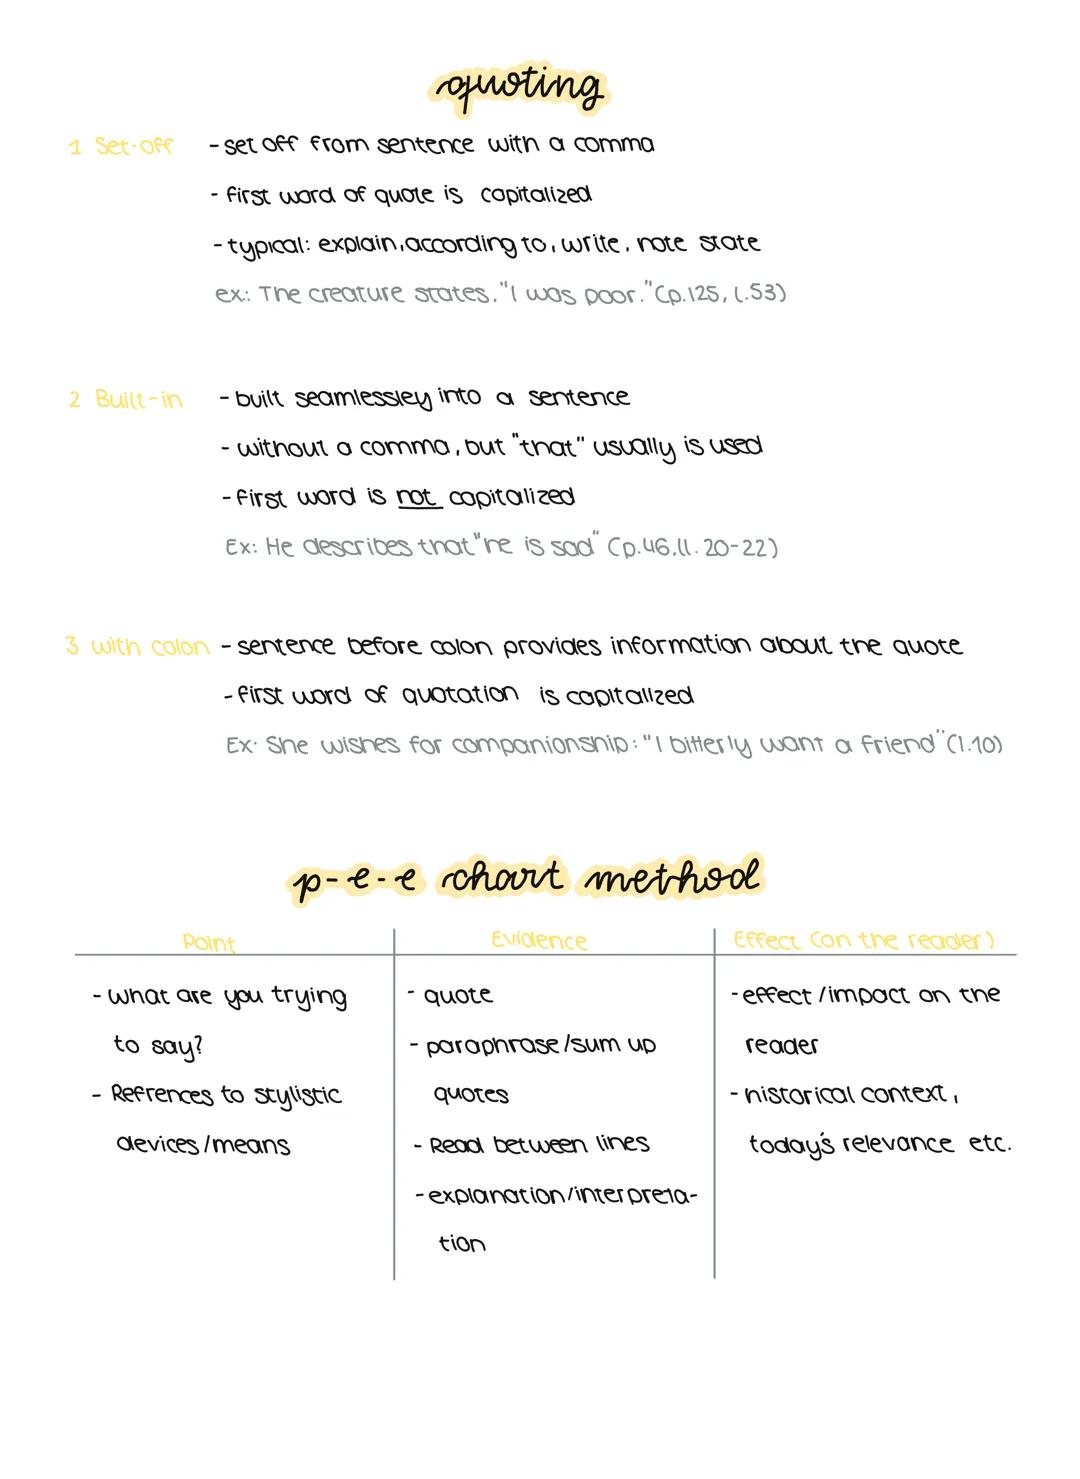 quoting
1 Set-off - set off from sentence with a comma
- first word of quote is capitalized
- typical: explain, according to, write, note state
ex.: The creature states, "I was poor." (p.125, l.53)
2 Built-in - built seamlessley into a sentence
- without a comma, but "that" usually is used
- first word is not capitalized
Ex: He describes that "he is sad" (p.46, ll. 20-22)
3 with colon - sentence before colon provides information about the quote
- first word of quotation is capitalized
Ex: She wishes for companionship: "I bitterly want a friend" (l.10)
p-e-e chart method
Point Evidence Effect (on the reader)
- What are you trying
to say?
- Refrences to stylistic
devices/means
- quote
- paraphrase/sum up
quotes
- Read between lines
- explanation/interpreta-
tion
- effect/impact on the
reader
- historical context,
today's relevance etc.